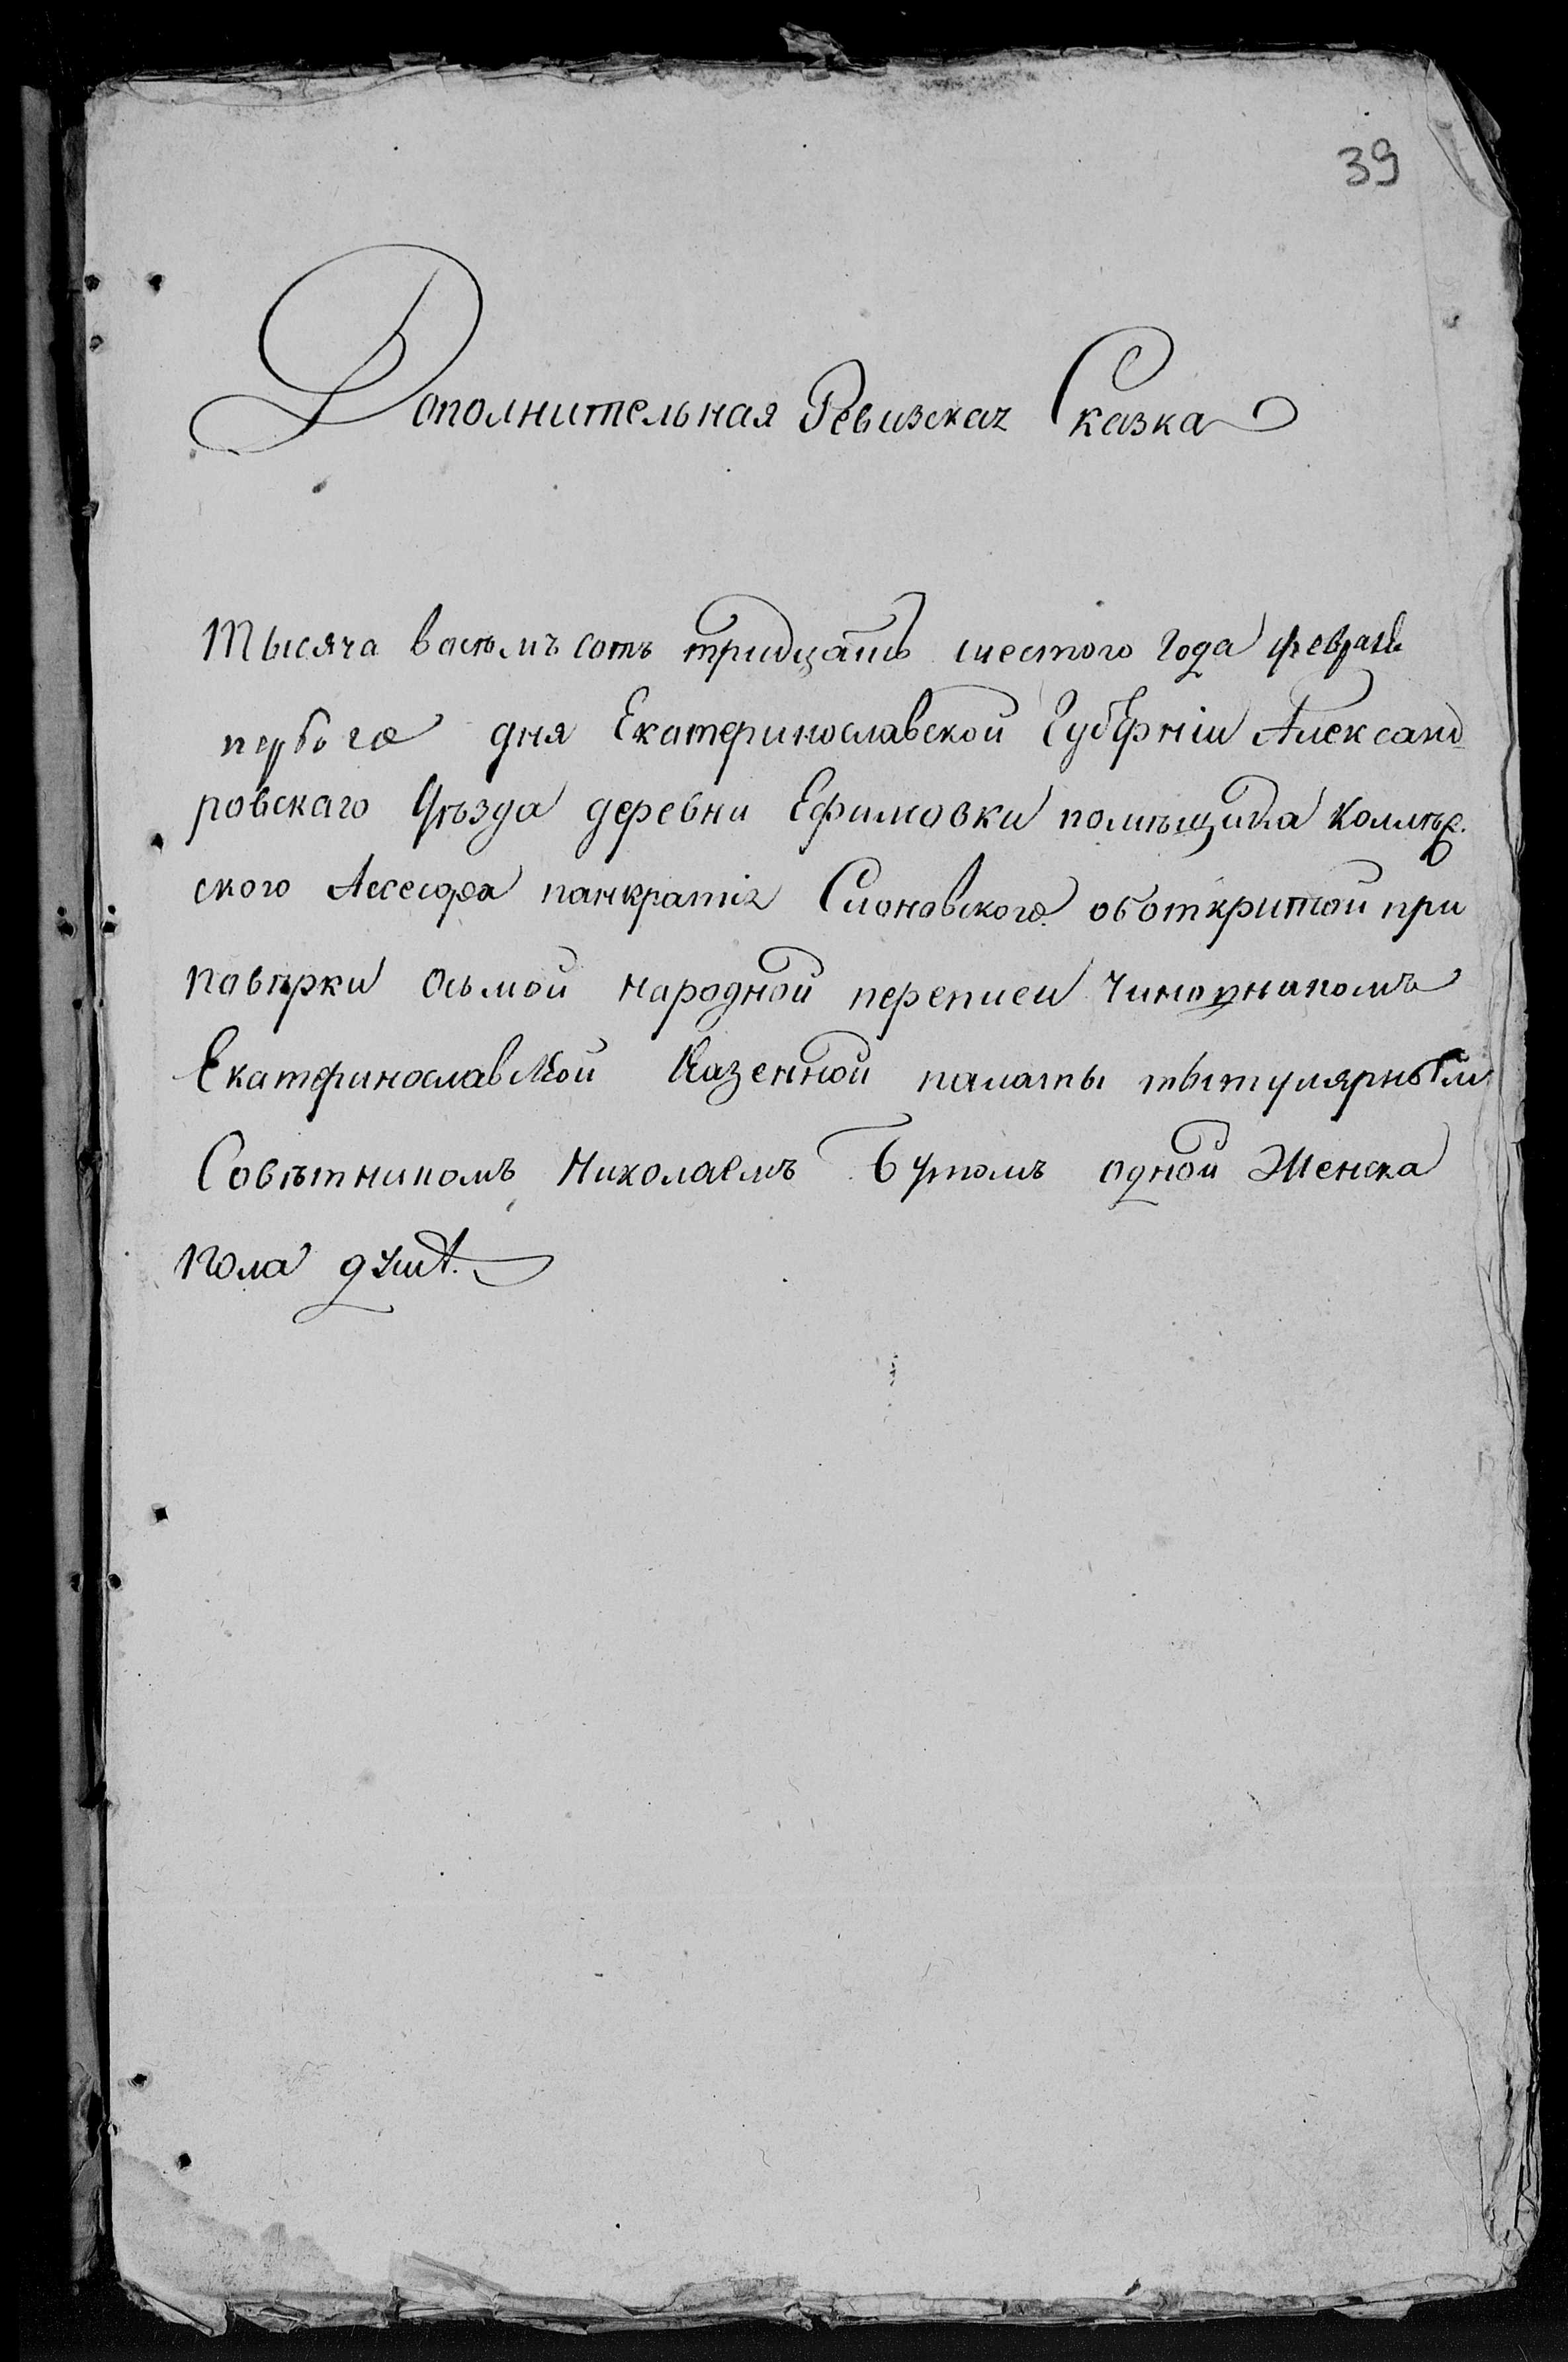 39
Дополнительная Ревизская Сказка
Тысяча восемъ сотъ тридцать шестого года февраля
перваго дня Екатеринославской Губерніи Александ
ровскаго Уѣзда деревни Ефимовки помѣщика Коллеж.
ского Ассесора панкратія Слоновского об открытой при
повѣрки осьмой народной переписи Чиновникомъ
Екатеринославской Казенной палаты тытулярным
Совѣтникомъ Николаемъ одной Женска
Пола душѣ.